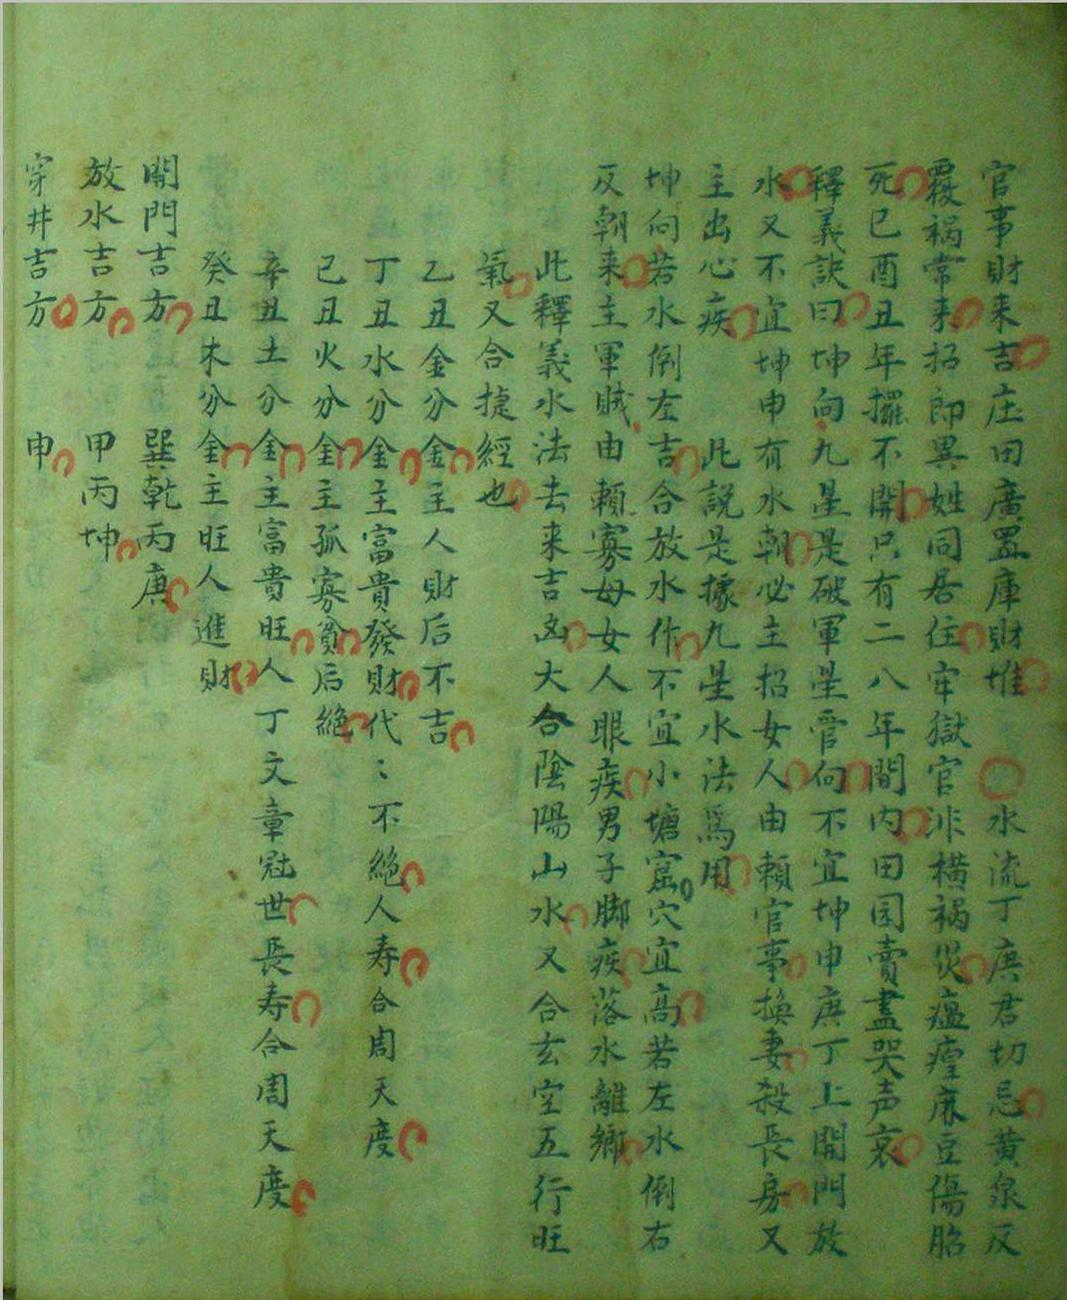 官事財来吉庄田廣置庫財堆 水流丁庚君切忌黄泉反
覆禍常来招郎異姓同居住牢獄官非横禍災瘟瘴麻豆傷胎
死巳酉丑年擺不開只有二八年間内田园賣盡哭声哀
釋義訣曰坤向九星是破軍星管向不宜坤申庚丁上開門放
水又不宜坤申有水朝必主招女人由賴官事換妻殺長房又
主出心疾 此説是據九星水法爲用
坤向若水倒左吉合放水作不宜小塘窟穴宜高若左水倒右
反朝来主軍賊由賴寡母女人眼疾男子脚疾落水離鄉
此釋義水法去来吉凶大合陰陽山水又合玄空五行旺
氣又合捷經也
乙丑金分金主人財后不吉
丁丑水分金主富貴發財代〻不絶人寿合周天度
己丑火分金主孤寡貧后絶
辛丑土分金主富貴旺人丁文章冠世長寿合周天度
癸丑木分金主旺人進財
開門吉方 巽乾丙庚
放水吉方 甲丙坤
穿井吉方 申